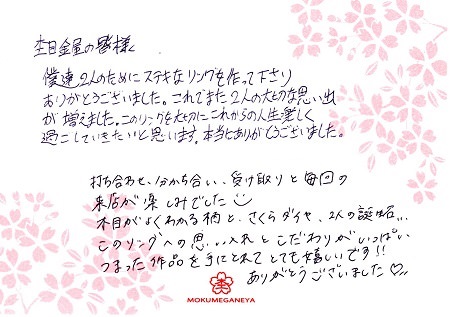 杢目金屋の皆様へ
僕達2人のためにステキなリングを作って下さり
ありがとうございました。これでまた2人の大切な思い出
が増えました。このリングを大切にこれからの人生楽しく
過ごしていきたいと思います。本当にありがとうございました。
打ち合わせ、分かち合い、受け取りと毎回の
来店が楽しみでした
木目がよくわかる柄と、さくらダイヤ、2人の誕生石...
このリングへの思い入れとこだわりがいっぱい
つまった作品を手にとれてとても嬉しいです!!
ありがとうございました♡
MOKUMEGANEYA